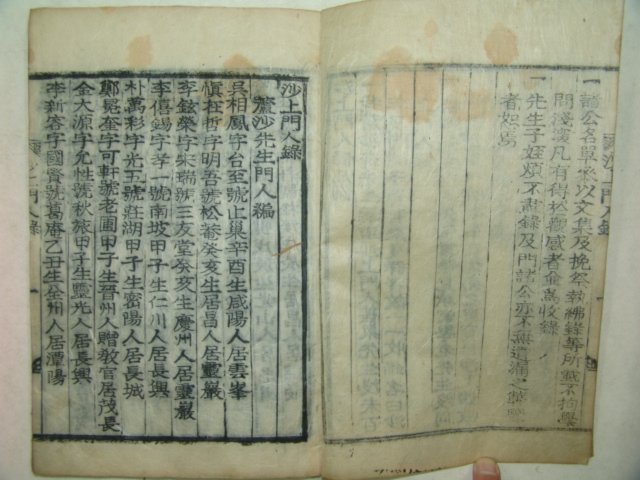 一 諸公名單參以文集及挽祭執紼錄等所載不拘學
問淺深凡有得於觀感者僉爲收錄
一 先生子姪煩不盡錄及門諸公亦不無遺漏之
者恕焉
沙上門人錄
沙上門人錄
蘆沙先生門人編
吳相鳳字台至號止巢辛酉生咸陽人居雲峯
愼在哲字明吾號松菴癸亥生居昌人居靈巖
李鉉榮字宋瑞號三友堂癸亥生慶州人居靈巖
李僖錫字孝一號南坡甲子生仁川人居長興
朴萬彩字光五號莊湖甲子生密陽人居長城
鄭冕奎字可軒號老圃甲子生晋州人贈教官居茂長
金大源字允性號秋旅甲子生靈光人居長興
李新容字國賢號葛庵乙丑生全州人居潭陽
上門人錄